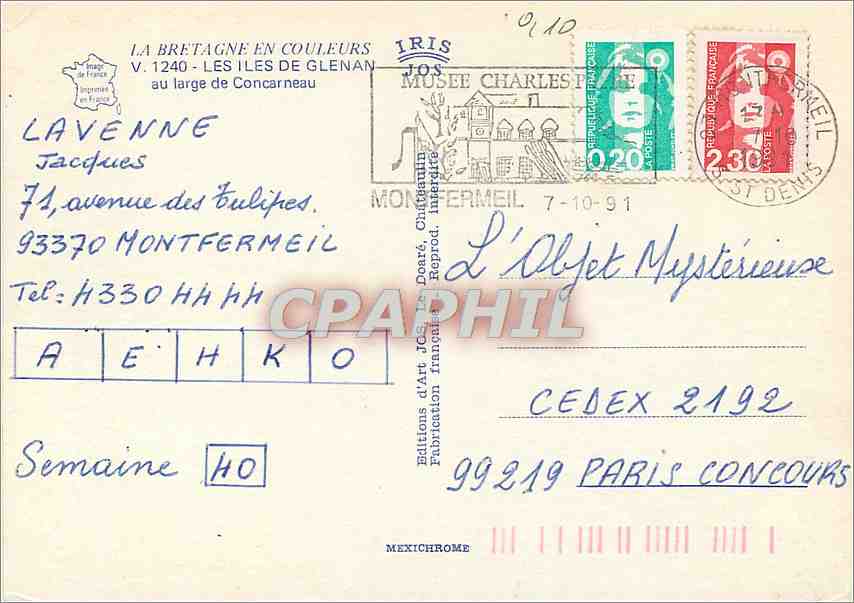 0,10
Image
de France
Imprimée
en France
LA BRETAGNE EN COULEURS
V. 1240 - LES ILES DE GLENAN
au large de Concarneau
IRIS
JOS
MUSEE CHARLES
MONTFERMEIL 7-10-91
REPUBLIQUE FRANÇAISE
0,20
LA POSTE
REPUBLIQUE FRANÇAISE
2,30
LA POSTE
MONTFERMEIL
ST DENIS
LAVENNE
Jacques
71, avenue des Tulipes.
93370 MONTFERMEIL
Tel: 4330 44 44
A E H K O
Semaine 40
Editions d'Art JOS, Le Doaré, Châteaulin
Fabrication française - Reprod. interdite
L'Objet Mystérieuse
CEDEX 2192
99219 PARIS CONCOURS
MEXICHROME
CPAPHIL